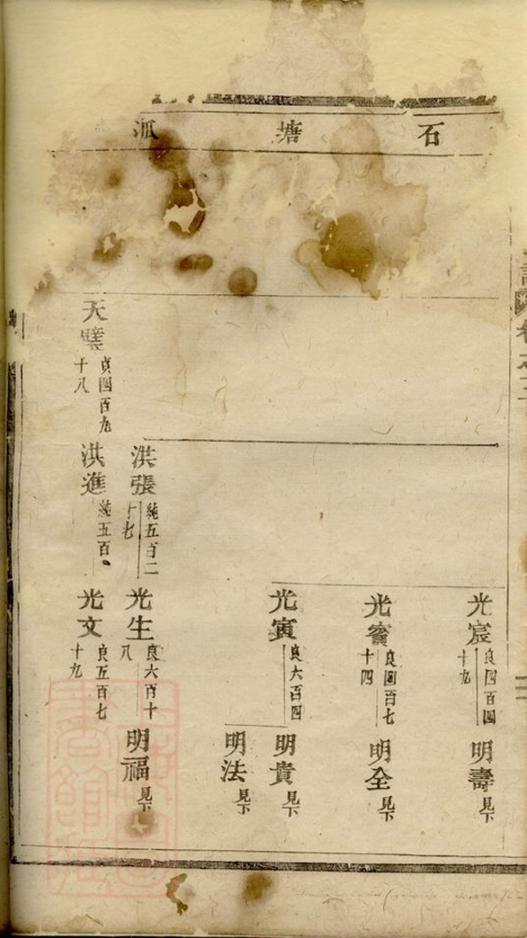 石塘派
光宸
良四百四十九
明壽
見下
光賓
良四百七十四
明全
見下
光寅
良六百四
明貴
見下
明法
見下
洪張
純五百二十七
光生
良六百十八
明福
見下
天璧
貞四百九十八
洪進
純五百
光文
良五百七十九